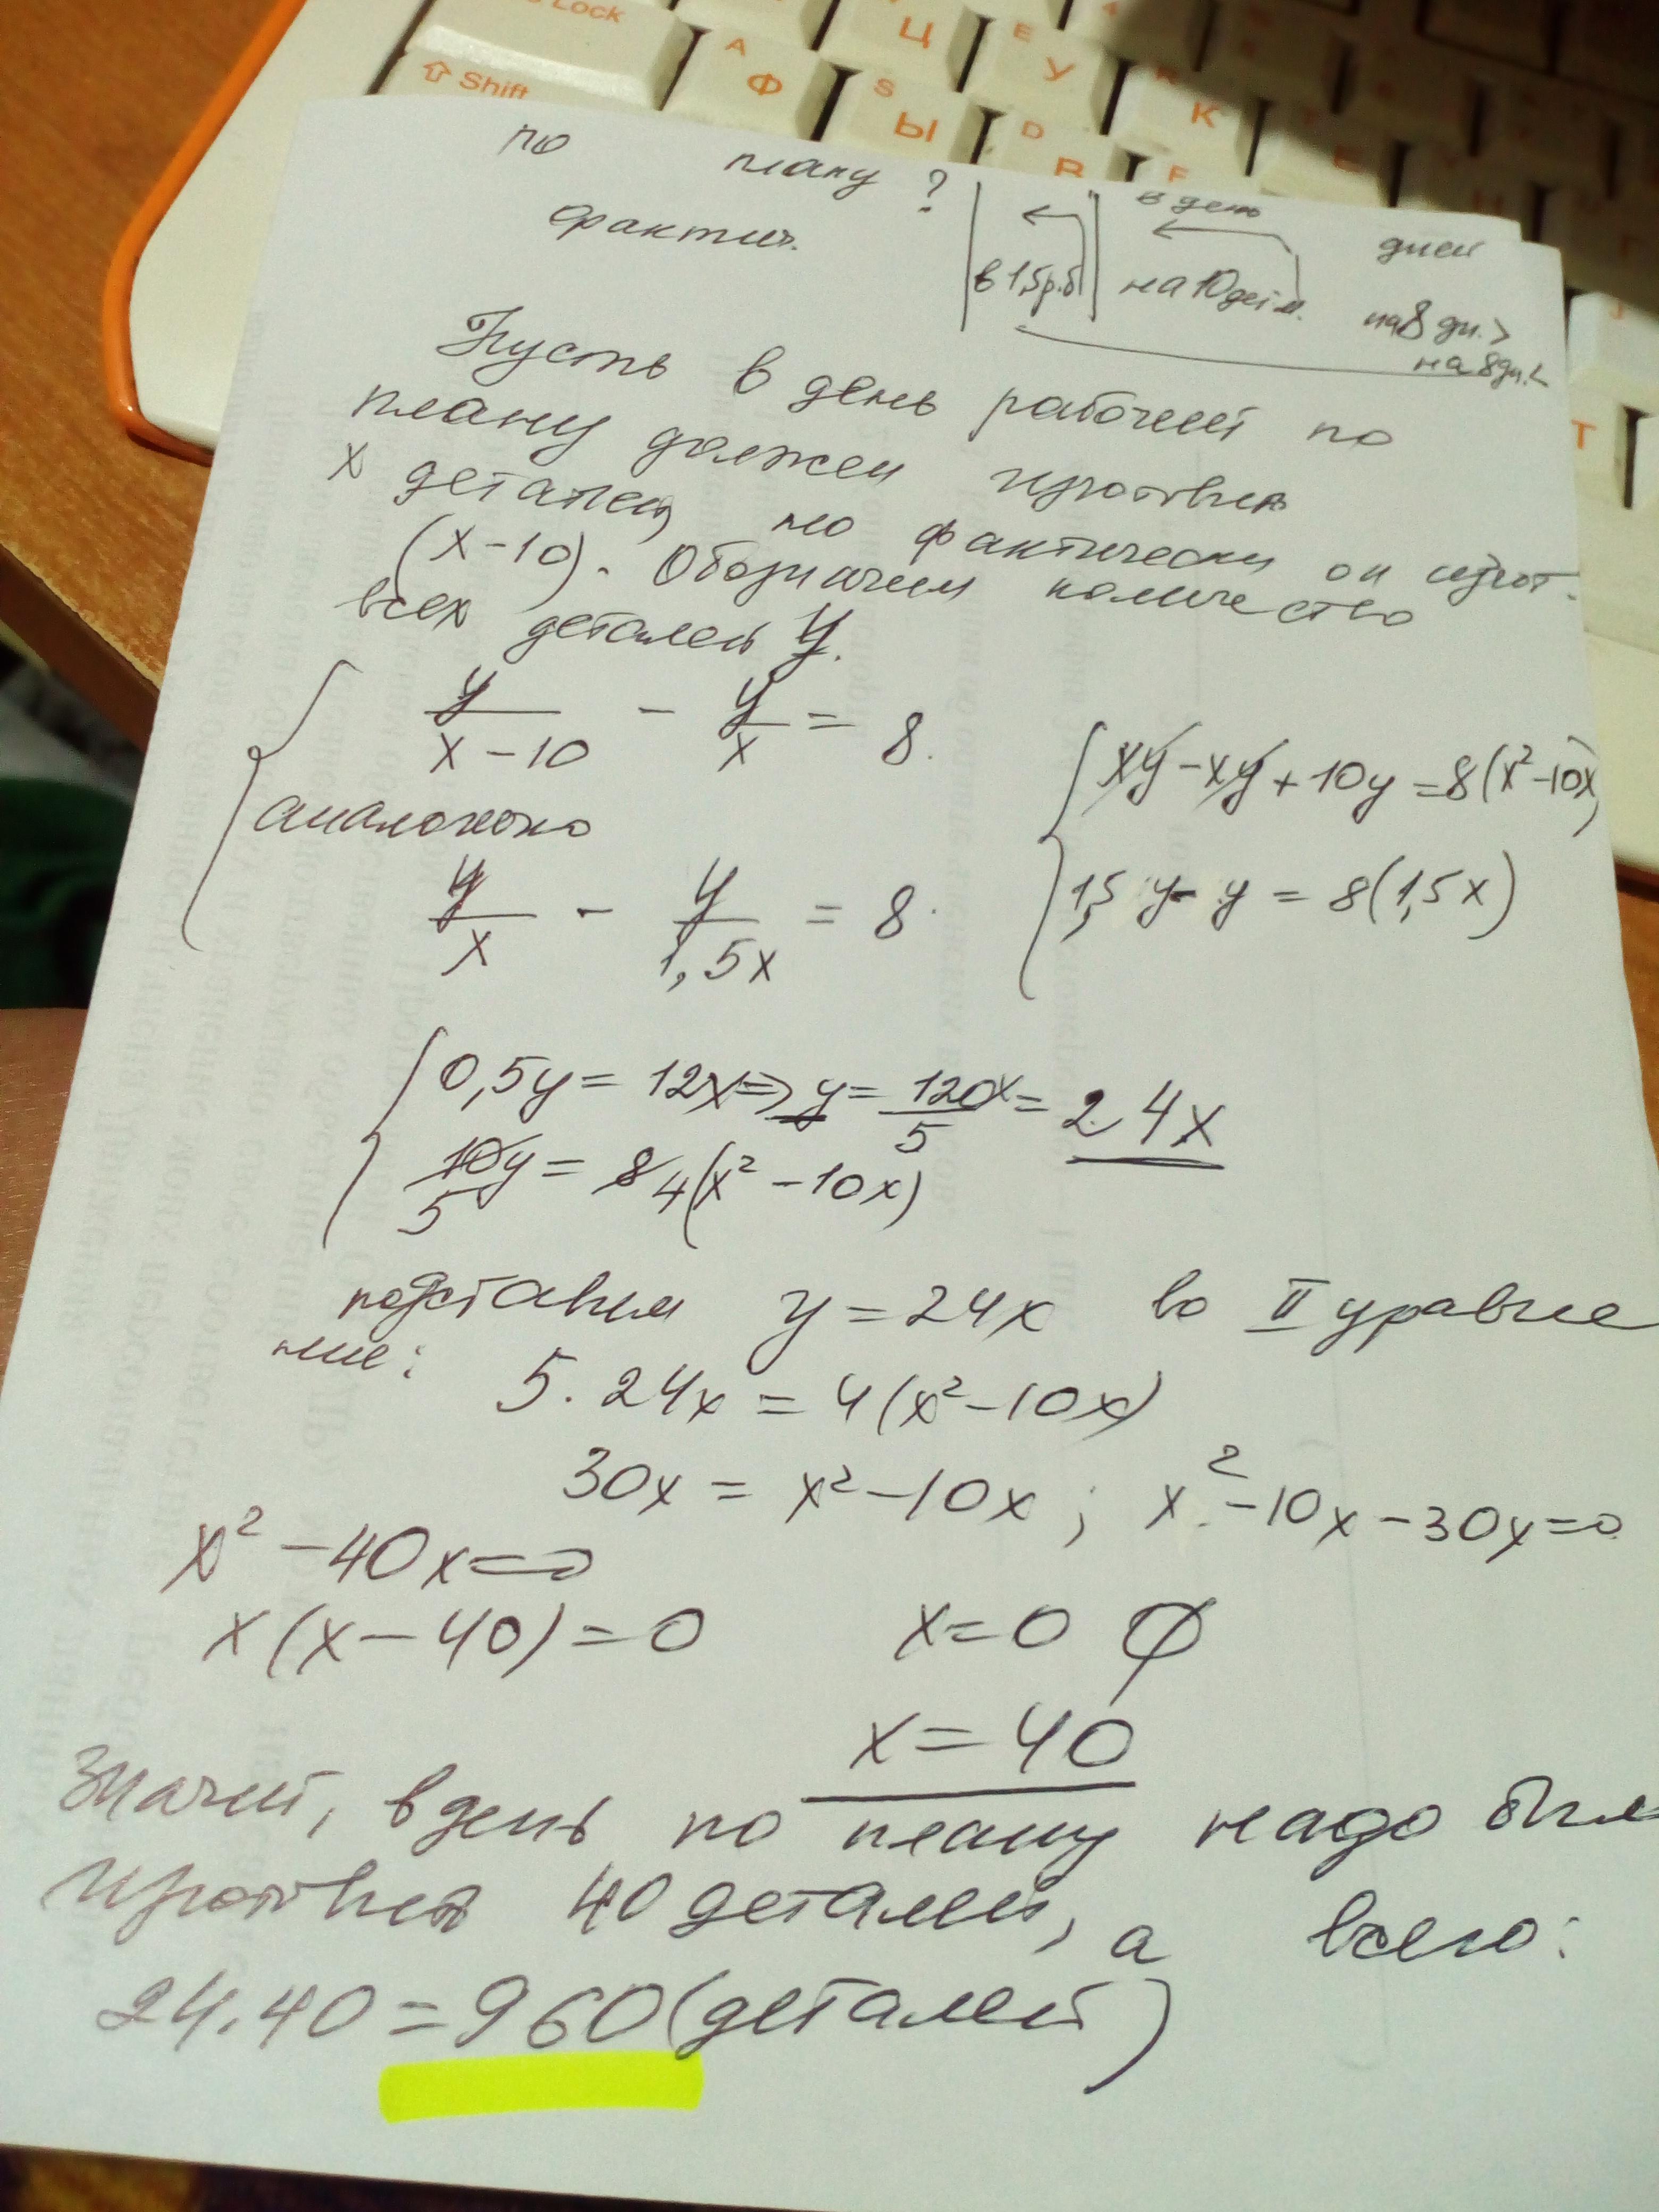 Lock
Shift
A Ф
Ц
S Ы
E У
D В
К
F
Т
по плану ?
фактич.
в 1,5 р.б
в день
на 10 дет м.
дней
на 8 дн. >
на 8 дн. <
Пусть в день рабочий по
плану должен изготовить
x деталей, но фактически он изгот.
(x-10). Обозначим количество
всех деталей y.
y/(x-10) - y/x = 8.
аналогично
y/x - y/1,5x = 8.
xy - xy + 10y = 8(x² - 10x)
1,5 y - y = 8(1,5x)
0,5y = 12x => y = 120x/5 = 24x
10y = 8 4(x² - 10x)
5
подставим y = 24x во II уравне
ние:
5 · 24x = 4(x² - 10x)
30x = x² - 10x ; x² - 10x - 30x = 0
x² - 40x = 0
x(x - 40) = 0 x = 0 ∅
x = 40
Значит, в день по плану надо было
изготовить 40 деталей, а всего:
24 · 40 = 960 (деталей)